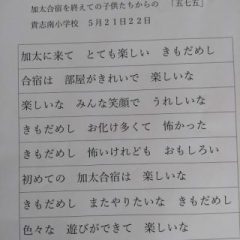 加太合宿を終えての子供たちからの 「五七五」
貴志南小学校 5月21日22日
加太に来て とても楽しい きもだめし
合宿は 部屋がきれいで 楽しいな
楽しいな みんな笑顔で うれしいな
きもだめし お化け多くて 怖かった
きもだめし 怖いけれども おもしろい
初めての 加太合宿は 楽しいな
きもだめし またやりたいな きもだめし
色々な 遊びができて 楽しいな